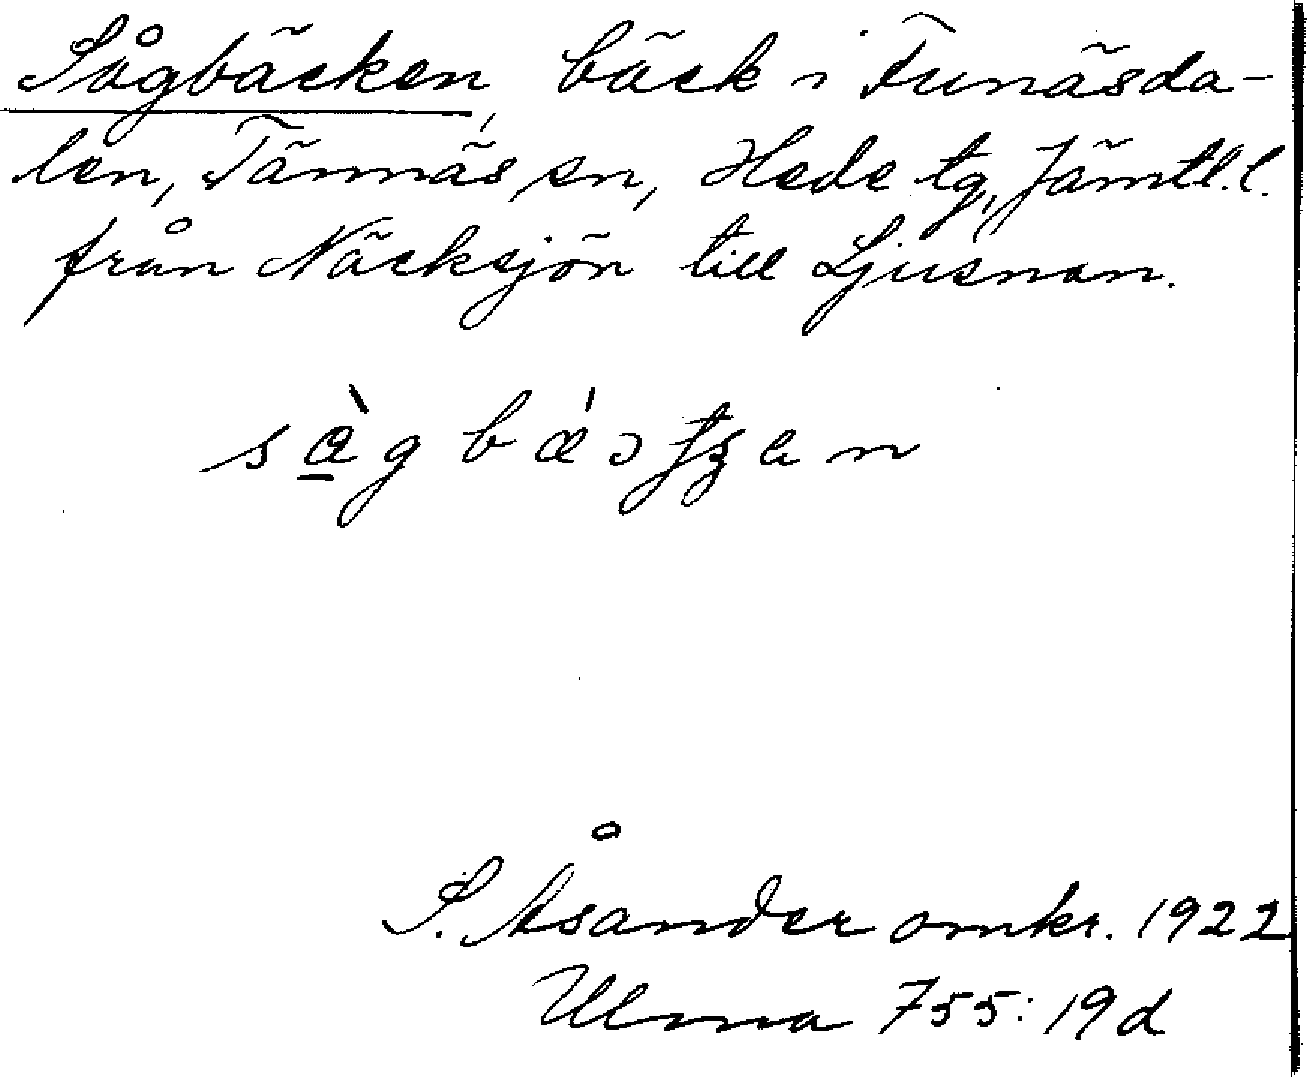 Sågbäcken, bäck i Funäsda-
len, Tännäs sn, Hede tg, Jämtl.l.
från Näcksjön till Ljusnan.
S. Åsander omkr. 1922
Ulma 755:19d